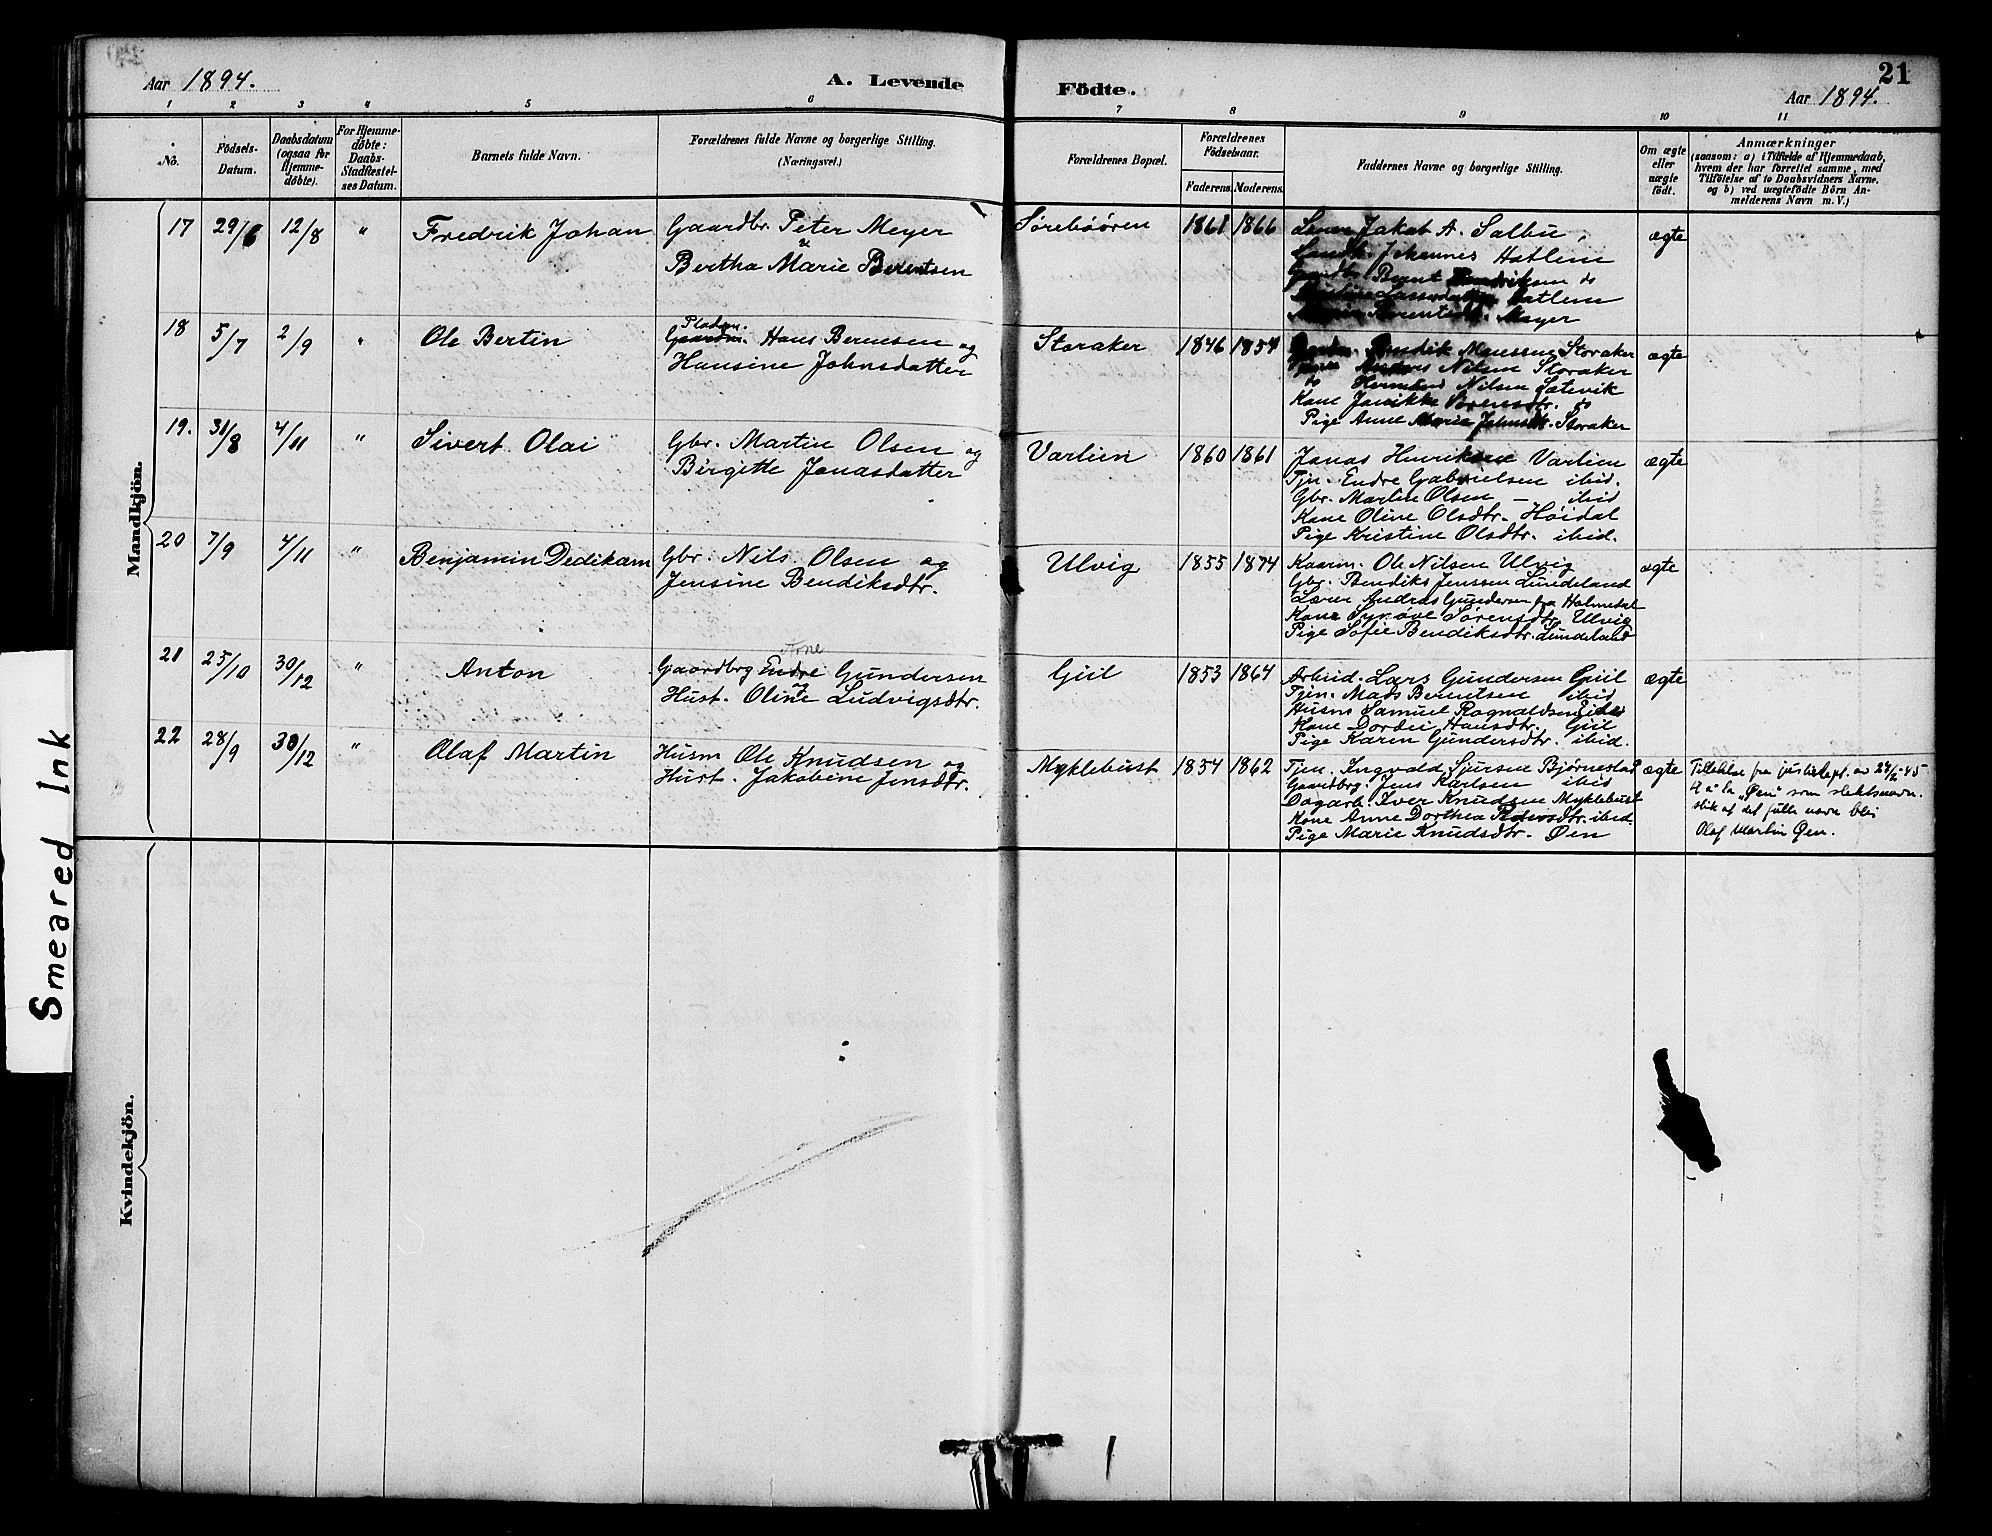 Aar 1894.
A. Levende
Födte.
21
Aar 1894.
1 2 3 4 5 6 7 8 9 10 11
No.
Fødsels-
Datum.
Daabsdatum
(ogsaa for
Hjemme-
døbte).
For Hjemme-
døbte:
Daabs-
Stadfæstel-
ses Datum.
Barnets fulde Navn.
Forældrenes fulde Navne og borgerlige Stilling.
(Næringsvei.)
Forældrenes Bopæl.
Forældrenes
Fødselsaar.
Faderens. Moderens.
Faddernes Navne og borgerlige Stilling.
Om ægte
eller
uægte
født.
Anmærkninger
(saasom: a) i Tilfælde af Hjemmedaab,
hvem der har forrettet samme, med
Tilføielse af to Daabsvidners Navne.
og b) ved uægtefødte Börn An-
melderens Navn m. V.)
Mandkjön.
17 29/6 12/8 " Fredrik Johan
Gaardbr. Peter Meyer
&
Bertha Marie Berentsen
Sørebøøren 1861 1866
Jakob A. Salbu,
Johannes Hatlem
Gaardbr. Bernt
Hatlem
Meyer
ægte
18 5/7 2/9 " Ole Bertin
Pladsm.
Gaardm. Hans Berensen og
Hansine Johnsdatter
Storaker 1846 1854
Bendik Monssen Storaker
Anders Nilsen Storaker
do Hermund Nilsen Sætevik
Kone Janikke Sørensdtr. do
Pige Anne Marie Johnsdtr. Storaker
ægte
19. 31/8 4/11 " Sivert Olai
Gbr. Martin Olsen og
Birgitte Jonasdatter
Varlien 1860 1861
Jonas Henriksen Varlien
Tjn. Endre Gabrielsen ibid.
Gbr. Martin Olsen — ibid
Kone Oline Olsdtr. Høidal
Pige Kristine Olsdtr. ibid.
ægte
20 7/9 4/11 " Benjamin Dedikam
Gbr. Nils Olsen og
Jensine Bendiksdtr.
Ulvig 1855 1874
Kaarm. Ole Nilsen Ulvig
Gbr. Bendiks Jenssen Lundeland
Lærer Andras Gundersen fra Holmedal
Kone Synøve Sørensdtr. Ulvig
Pige Sofie Bendiksdtr. Lundeland
ægte
21 25/10 30/12 " Anton
Arne
Gaardbrg Endre Gundersen
og
Hust. Oline Ludvigsdtr.
Gjil 1853 1864
Arbeid. Lars Gundersen Gjil
Tjen. Mads Berentsen ibid
Husm Samuel Rognaldsen Eide
Kone Dordei Hansdtr. Gjil
Pige Karen Gundersdtr. ibid.
ægte
22 28/9 30/12 " Olaf Martin
Husm Ole Knudsen og
Hust. Jakobine Jensdtr.
Myklebust 1854 1862
Tjen. Ingvald Sjursen Bjørnestad
Gaardbrg. Jens Karlsen ibid
Dagarb. Iver Knudsen Myklebust
Kone Anne Dorthea Pedersdtr. ibid.
Pige Marie Knudsdtr. Øen
ægte
Tillatelse fra justisdept. av 24/2-45
til å ta "Øen" som slektsnavn.
slik at det fulle navn blir
Olaf Martin Øen.
Kvindekjön.
Smeared Ink